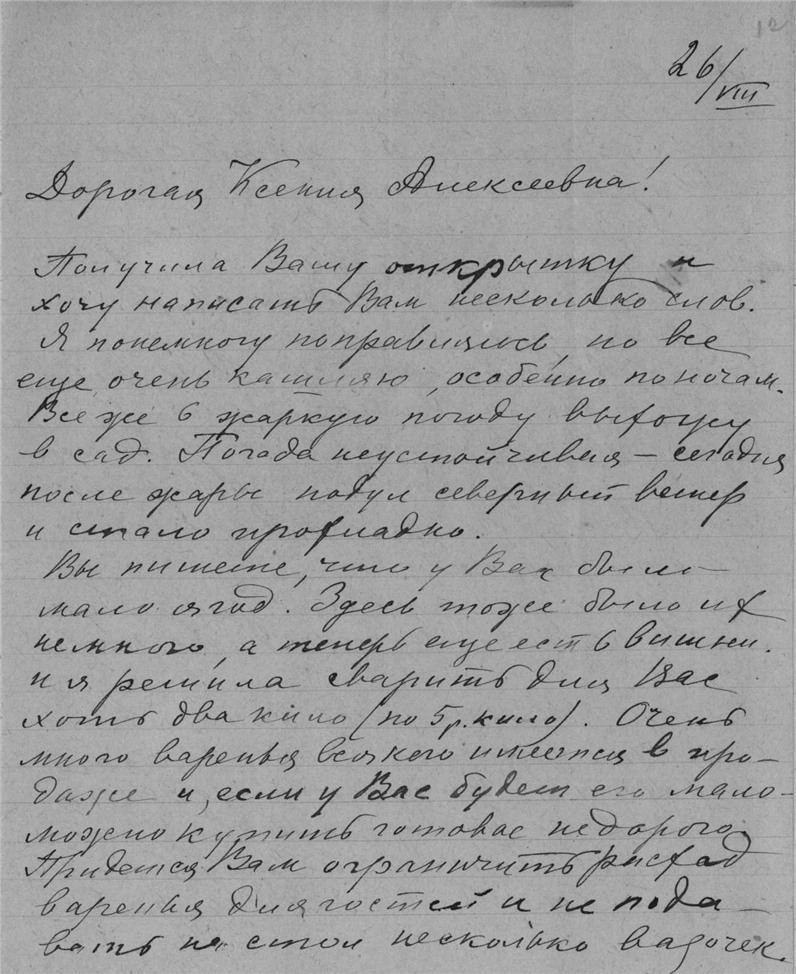 12
26/VIII
Дорогая Ксения Алексеевна!
Получила Вашу открытку и
хочу написать Вам несколько слов.
Я понемногу поправляюсь, но все
еще очень кашляю, особенно по ночам.
Все же в жаркую погоду выхожу
в сад. Погода неустойчивая – сегодня
после жары подул северный ветер
и стало прохладно.
Вы пишете, что у Вас было
мало ягод. Здесь тоже было их
немного, а теперь еще есть вишни.
и я решила сварить для Вас
хоть два кило (по 5 р. кило). Очень
много варенья всякого имеется в про-
даже и, если у Вас будет его мало -
можно купить готовое недорого.
Придется Вам ограничить расход
варенья для гостей и не пода-
вать на стол несколько вазочек.